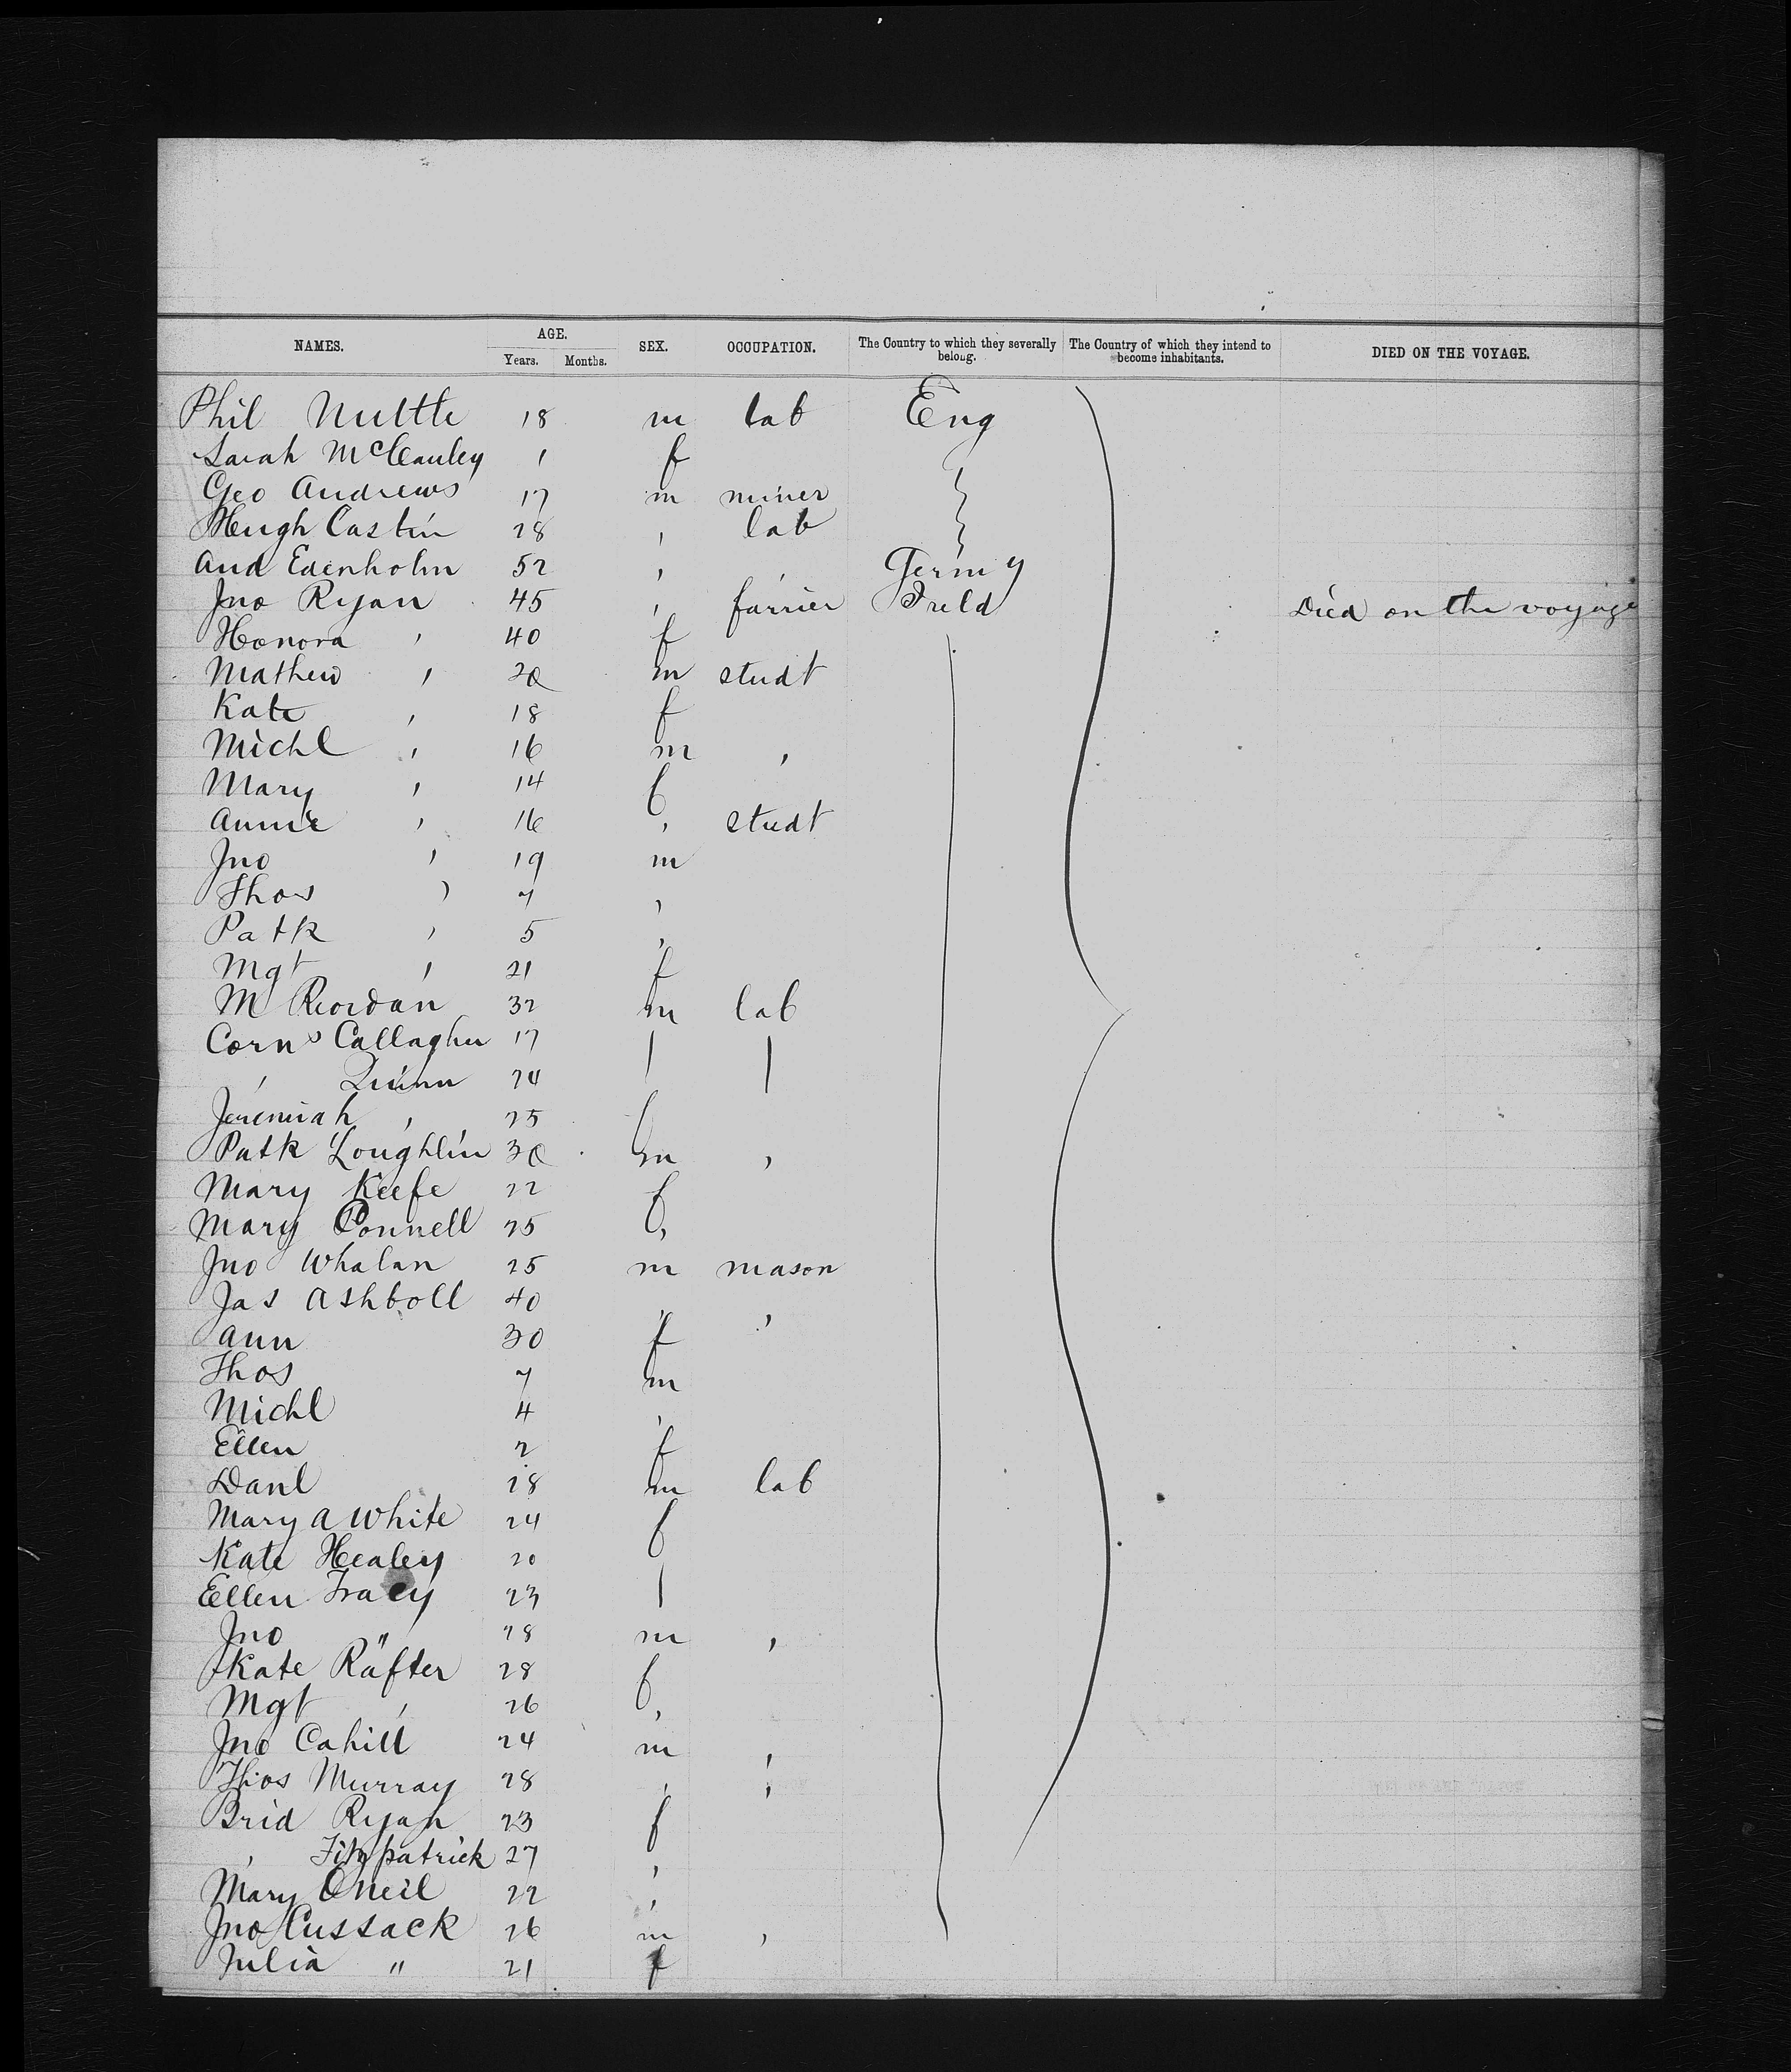 NAMES. AGE. SEX. OCCUPATION. The Country to which they severally belong. The Country of which they intend to become inhabitants. DIED ON THE VOYAGE.
Years. Months.
Phil Nuttle 18 m lab Eng
Sarah McCauley 1 f
Geo Andrews 17 m miner
Hugh Castin 28 , lab
And Edenholm 52 , , Germy
Jno Ryan 45 , farrier Ireld Died on the voyage
Honora , 40 f
Mathew , 20 m studt
Kate , 18 f
Michl , 16 m ,
Mary , 14 f
Annie , 16 , studt
Jno , 19 m
Thos , 7 ,
Patk , 5 ,
Mgt , 21 f
M Reordan 32 m lab
Corns Callagher 17
, Quinn 24
Jeremiah , 25
Patk Loughlin 30 m ,
Mary Keefe 22 f
Mary Connell 25 ,
Jno Whalan 25 m mason
Jas Ashboll 40 , ,
Ann 30 f
Thos 7 m
Michl 4 ,
Ellen 2 f
Danl 28 m lab
Mary A White 24 f
Kate Healey 20
Ellen Tracy 23
Jno " 28 m ,
Kate Rafter 28 f
Mgt , 26 ,
Jno Cahill 24 m ,
Thos Murray 28 , ,
Brid Ryan 23 f
, Fitzpatrick 27 ,
Mary ONeil 22 ,
Jno Cussack 26 m ,
Julia " 21 f